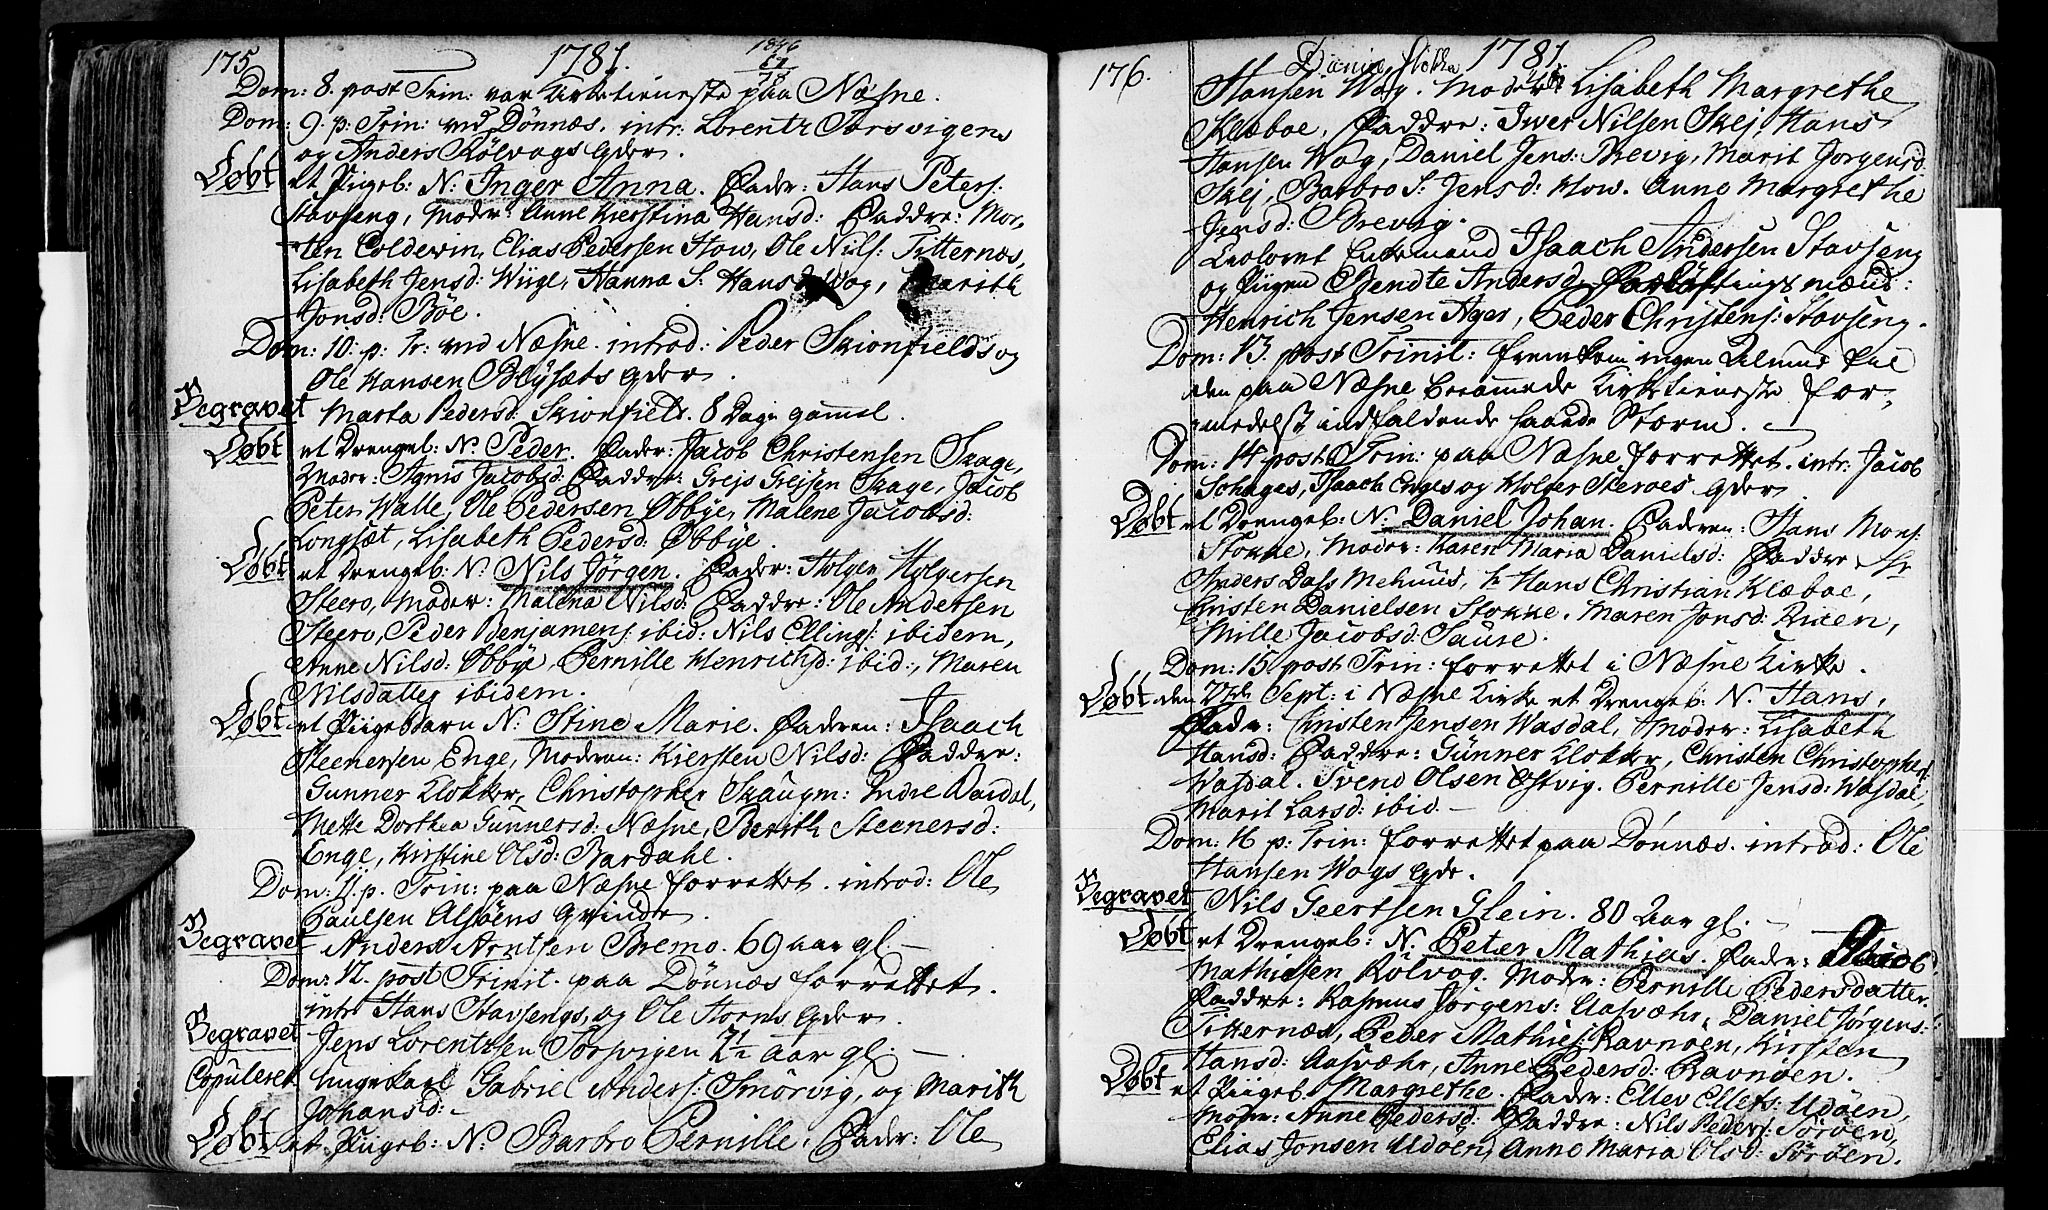 175 1781. 1846
67
78
Dom: 8. post Trin: var Altertieneste paa Næsne.
Dom: 9. p: Trin: ved Dønnæs. intr: Lorentz Torsvigens
og Anders Rölvogs qder.
Døbt et Piigeb: N: Inger Anna. Fader: Hans Peters:
Stavseng, Moder: Anne Kierstina Hansd: Faddre: Mor-
ten Coldevin, Elias Pedersen How, Ole Nils: Titternæs,
Lisabeth Jensd: Wiige, Hanna S: Hansd: Wog, Marith
Jonsd: Böe.
Dom: 10: p: Tr: ved Næsne. introd: Peder Skionfields og
Ole Hansen Blysæts qder.
Begravet Marta Pedersd: Skionfield. 8 Dage gammel.
Døbt et Drengeb: N: Peder. Fader: Jacob Christensen Skage,
Moder: Agnis Jacobsd: Faddre: Grejs Grejsen Skage, Jacob
Peter Walle, Ole Pedersen Øbbye, Malene Jacobsd:
Longsæt, Lisabeth Pedersd: Øbbye.
Døbt et Drengeb: N: Nils Jörgen. Fader: Holger Holgersen
Steero, Moder: Malena Nilsd: Faddre: Ole Andersen
Steero, Peder Benjamens: ibid: Nils Ellings: ibidem,
Anne Nilsd: Øbbye, Pernille Henrichsd: ibid:, Maren
Nilsdatter ibidem.
Døbt et Piigebbarn N: Stina Marie. Faderen: Isaach
Steenersen Enge, Moderen: Kiersten Nilsd: Faddre:
Gunner Klokker, Christopher Skaugm: Indre Dardal,
Mette Dorthea Gunnersd: Næsne, Berith Steenersd:
Enge, Kirstine Olsd: Bardahl.
Dom: 11. p. Trin: paa Næsne forrettet. introd: Ole
Paulsen Alsöens Qvinde.
Begravet Anders Arntsen Bremo. 69 aar gl.
Dom: 12. post Trinit. paa Dönnæs forrettet.
intr: Hans Stavsengs, og Ole Storms qder.
Begravet Jens Lorentzsen Torsvigen 21/2 aar gl.
Copuleret Ungekarl Gabriel Anders: Smörvig, og Marith
Johansd:
Døbt et Piigeb: N: Barbro Pernille. Fader: Ole
176. 1781.
Hansen Wog. Moder: Lisabeth Margrethe
Klæboe, Faddre: Iwer Nilsen Skej, Hans
Hansen Wog, Daniel Jens: Brevig, Marit Jorgensd:
Skej, Barbro S: Jensd: How. Anne Margrethe
Jensd: Brevig.
Trolovet Enkemand Isaach Andersen Stavseng
og Piigen Bendte Andersd: Forlöftningsmænd:
Henrich Jensen Ager, Peder Christens: Stavseng.
Dom: 13. post Trinit: fremkom ingen Almue til
den paa Næsne berammede Kirketieneste for-
medelst indfaldende haarde Storm.
Dom: 14 post Trin: paa Næsne forrettet. intr: Jacob
Schages, Isaach Enges og Holger Steroes qder.
Døbt et Drengeb: N: Daniel Johan. Faderen: Hans Mons:
Stokke, Moder: Karen Maria Danielsd: Faddre Hr
Anders Dass Mehuus, hr Hans Christian Klæboe,
Christen Danielsen Stokke. Maren Jonsd: Riken,
Mille Jacobsd: Saure.
Dom: 15. post Trin: forrettet i Næsne Kirke.
Døbt den 23de Sept: i Næsne Kirke et Drengeb: N. Hans,
Fader: Christen Jensen Wasdal, Moder: Lisabeth
Hansd: Faddre: Günner Klokker, Christen Christophers:
Wasdal. Svend Olsen Østvig. Pernille Jensd: Wasdal,
Marit Larsd: ibid.
Dom: 16 p: Trin: forrettet paa Dönnæs. introd: Ole
Hansen Wogs qde.
Begravet Nils Geertsen Glein. 80 Aar gl.
Døbt et Drengeb: N. Peter Mathias. Fader: Jacob
Mathissen Rölvog. Moder: Pernille Pedersdatter.
Faddre: Rasmus Jörgens: Aasvæhr, Daniel Jörgens:
Titternæs, Peder Mathies: Ravnöen, Kirsten
Hansd: Aasvæhr, Anne Pedersd: Ravnöen.
Døbt et Piigeb. Margrethe. Fader: Ellev Ellefs: Udöen,
Moder: Anne Pedersd: Faddre: Nils Peders: Söröen,
Elias Jonsen Udöen, Anne Maria Olsd: Söröen.